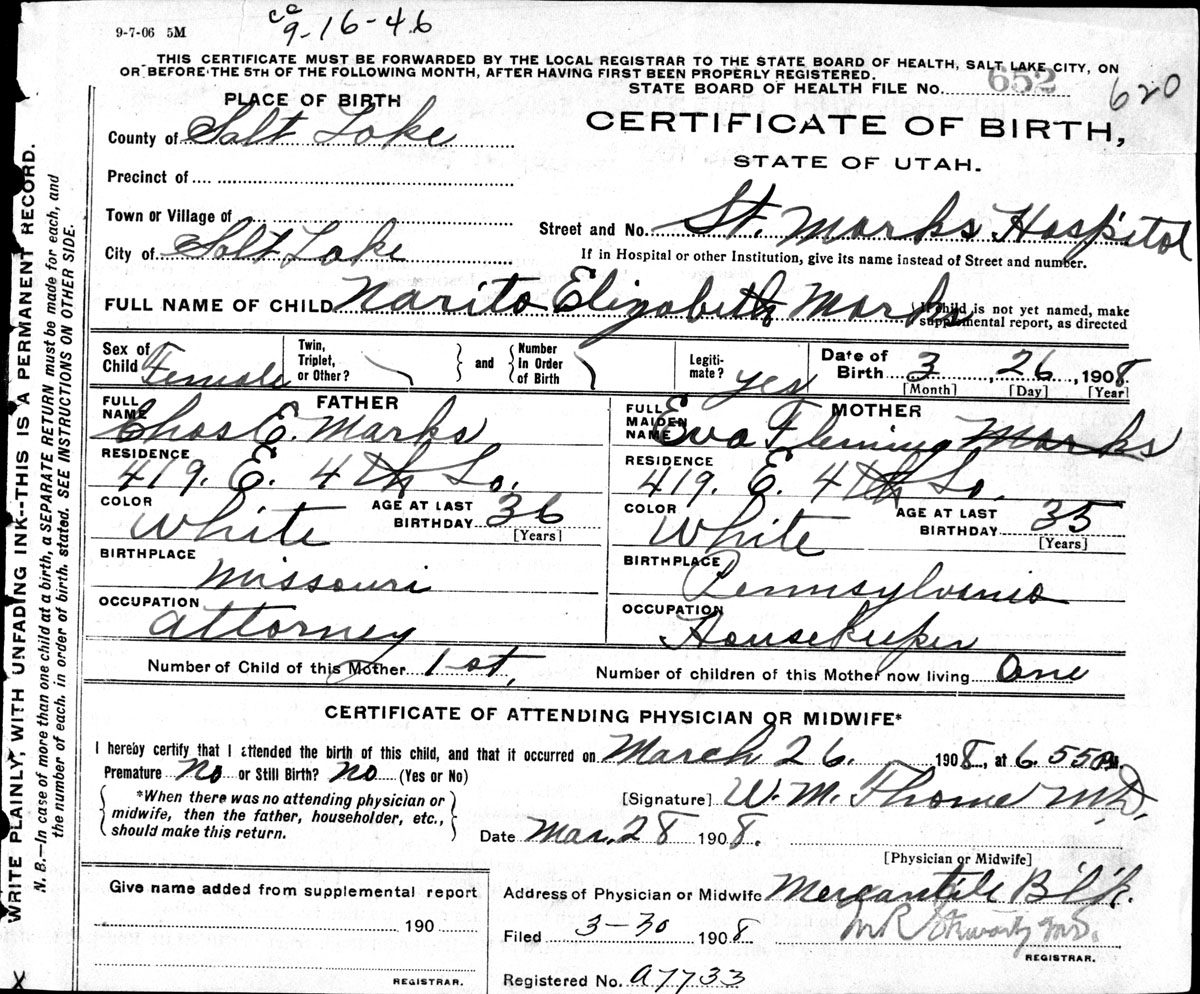 9-7-06 5M
ca 9-16-46
THIS CERTIFICATE MUST BE FORWARDED BY THE LOCAL REGISTRAR TO THE STATE BOARD OF HEALTH, SALT LAKE CITY, ON
OR BEFORE THE 5TH OF THE FOLLOWING MONTH, AFTER HAVING FIRST BEEN PROPERLY REGISTERED.
STATE BOARD OF HEALTH FILE No. 652
620
PLACE OF BIRTH
County of Salt Lake
CERTIFICATE OF BIRTH,
STATE OF UTAH.
Precinct of
Town or Village of
Street and No. St. Marks Hospital
City of Salt Lake
If in Hospital or other Institution, give its name instead of Street and number.
FULL NAME OF CHILD Narita Elizabeth Marks
If child is not yet named, make
supplemental report, as directed
Sex of Child Female
Twin, Triplet, or Other?
and
Number in Order of Birth
Legitimate? yes
Date of Birth 3, 26, 1908.
[Month] [Day] [Year]
FATHER
FULL NAME Chas E. Marks
RESIDENCE 419. E. 4th So.
COLOR White
AGE AT LAST BIRTHDAY 36
[Years]
BIRTHPLACE Missouri
OCCUPATION Attorney
MOTHER
FULL MAIDEN NAME Eva Fleming Marks
RESIDENCE 419. E. 4th So.
COLOR White
AGE AT LAST BIRTHDAY 35
[Years]
BIRTHPLACE Pennsylvania
OCCUPATION Housekeeper
Number of Child of this Mother 1st,
Number of children of this Mother now living One
CERTIFICATE OF ATTENDING PHYSICIAN OR MIDWIFE*
I hereby certify that I attended the birth of this child, and that it occurred on March 26. 1908, at 6.55 M.
Premature No or Still Birth? No (Yes or No)
*When there was no attending physician or
midwife, then the father, householder, etc.,
should make this return.
[Signature] W. M. M.D.
Date Mar. 28 1908.
[Physician or Midwife]
Give name added from supplemental report
190
REGISTRAR.
Address of Physician or Midwife Mercantile Bl'k.
Filed 3-30 1908
REGISTRAR.
Registered No. A7733
WRITE PLAINLY, WITH UNFADING INK--THIS IS A PERMANENT RECORD.
N. B.—In case of more than one child at a birth, a SEPARATE RETURN must be made for each, and
the number of each, in order of birth, stated. SEE INSTRUCTIONS ON OTHER SIDE.
X